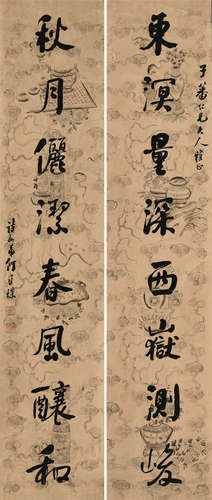 子蕃仁兄大人雅正
東溟量深西嶽測峻
秋月儷潔春風釀和